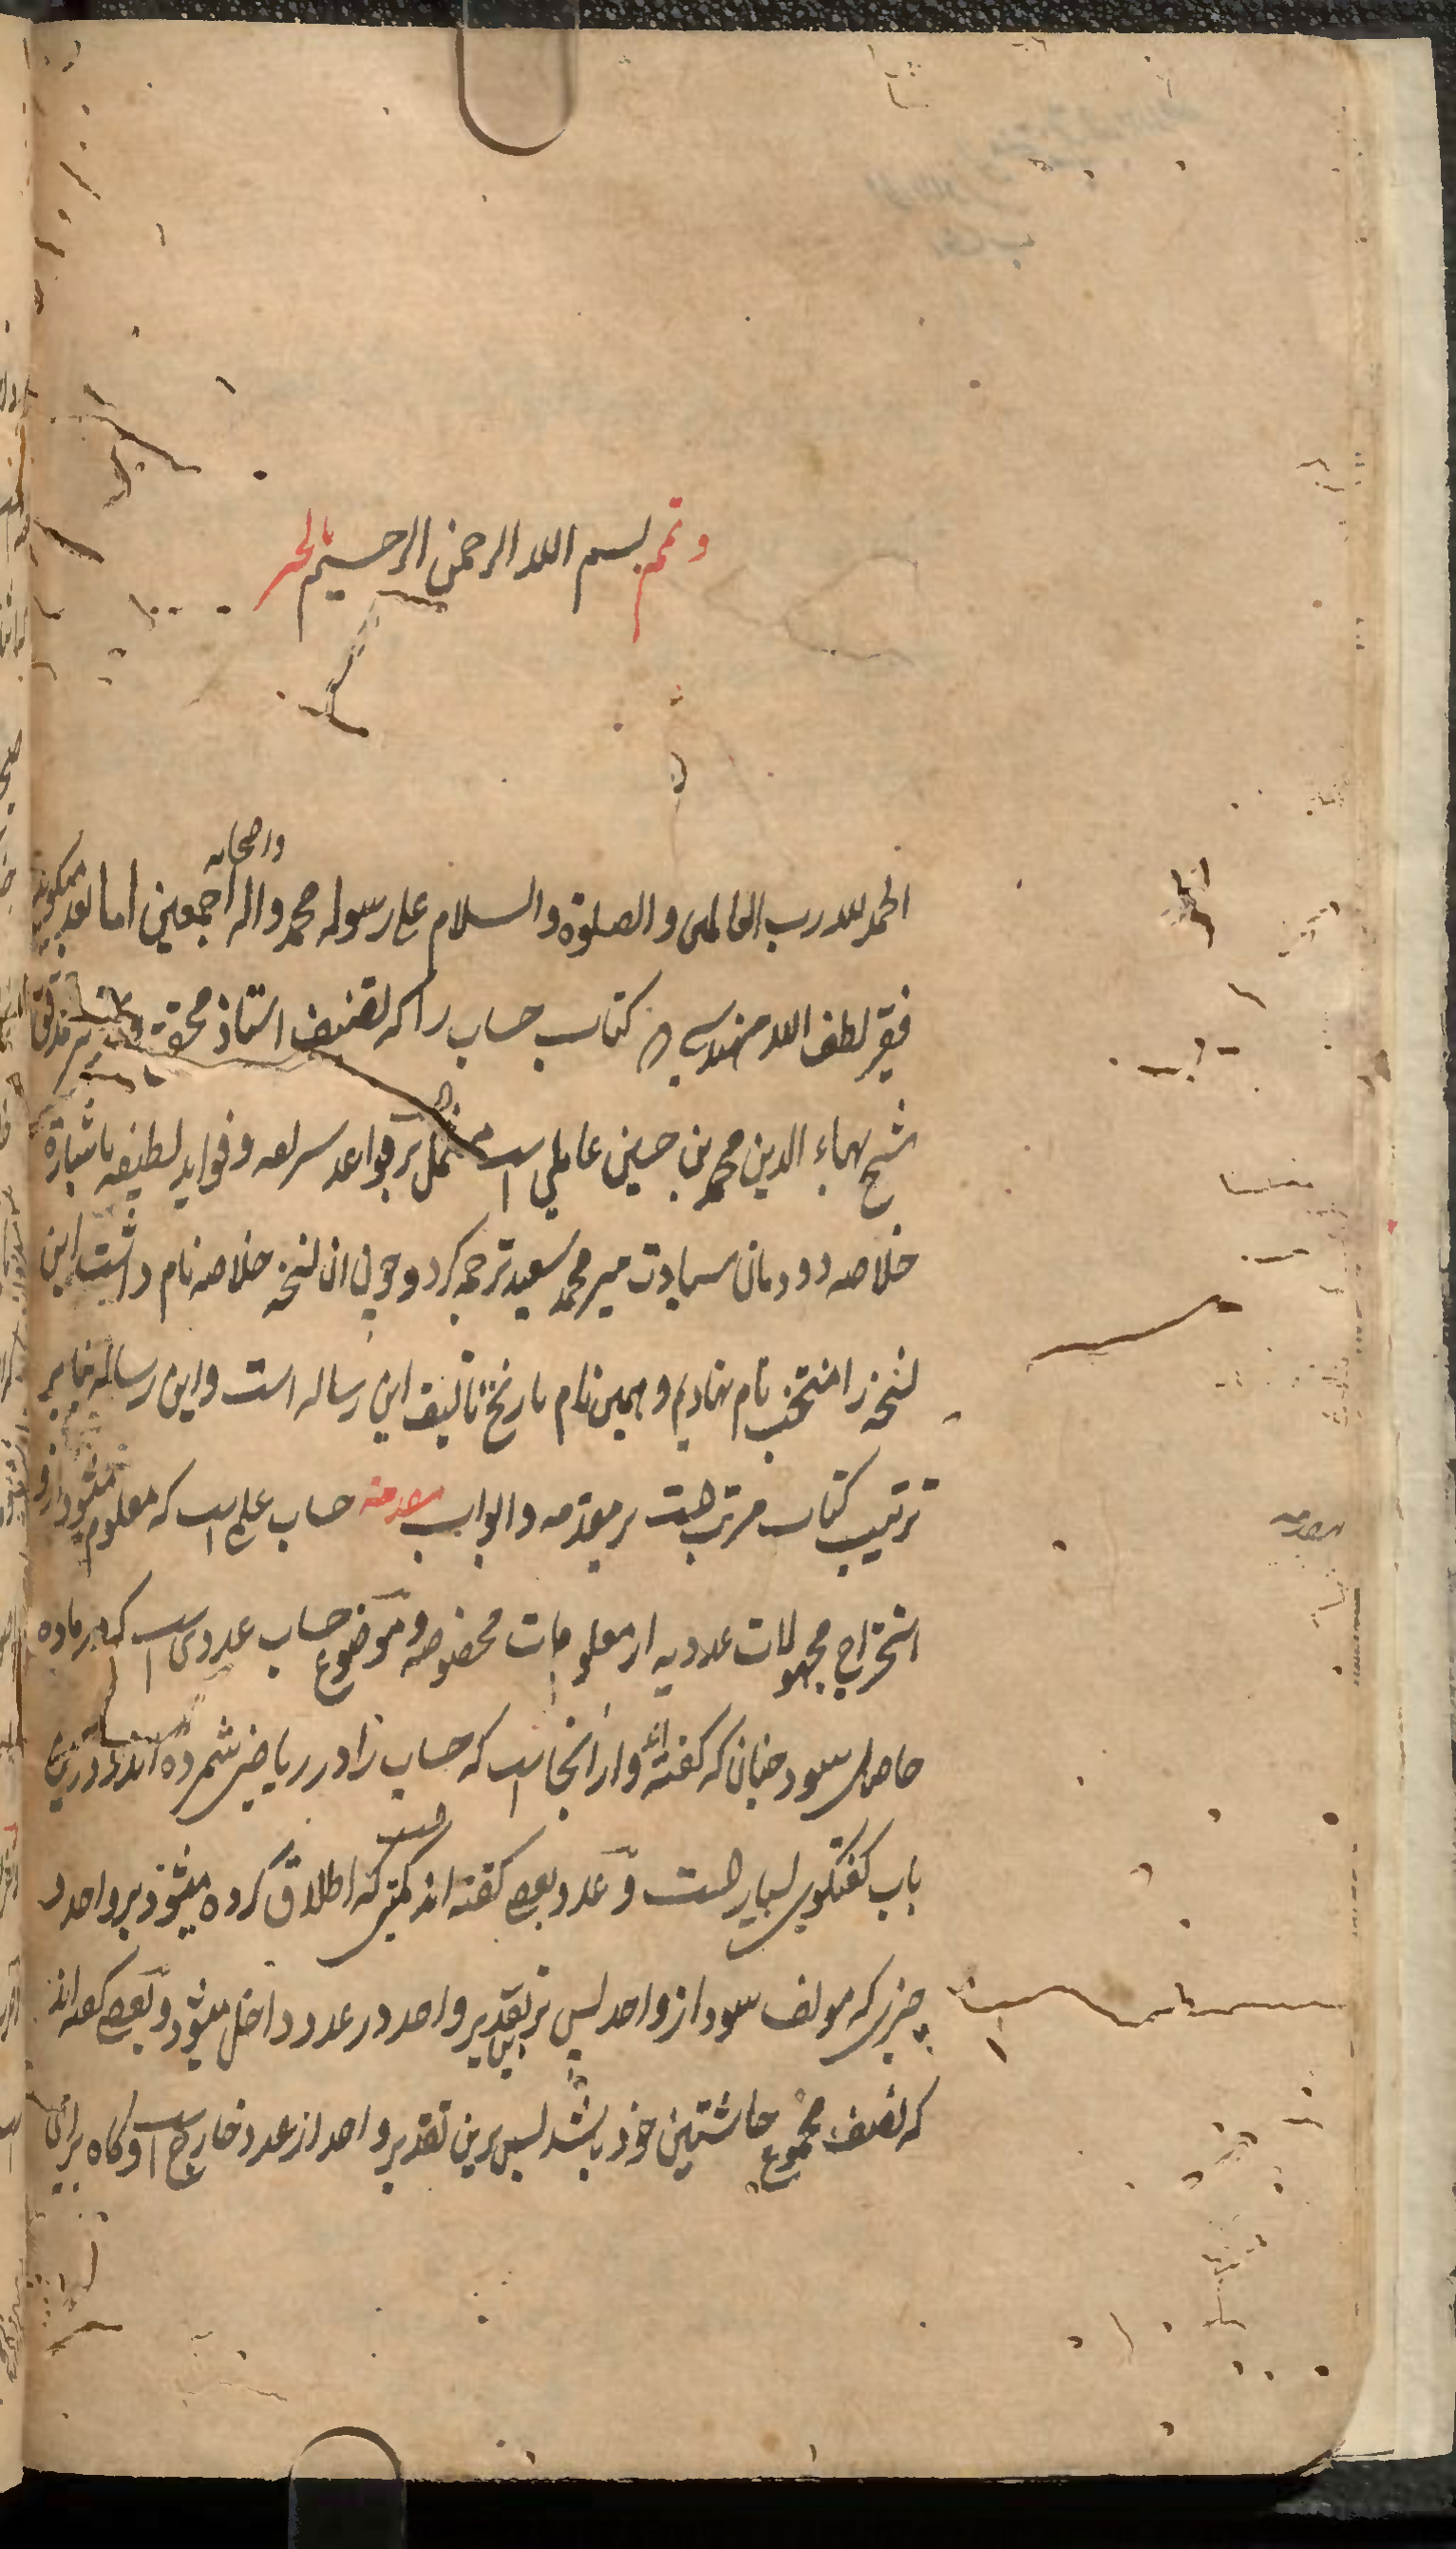 وتمم بسم الله الرحمن الرحيم بالخير
الحمد لله رب العالمين والصلوة والسلام على رسوله محمد واله واصحابه اجمعين اما بعد ميكويد
فقير لطف الله مهندس كتاب حساب را كه تصنيف استاذ محقق مدقق
شيخ بهاء الدين محمد بن حسين عاملي است مشتمل بر قواعد سريعه وفوايد لطيفه باشارة
خلاصه دودمان سيادت مير محمد سعيد ترجمه كرد وچون ان نسخه خلاصه نام داشت اين
نسخه را منتخب نام نهاديم وهمين نام تاريخ تاليف اين رساله است واين رساله بنا بر
ترتيب كتاب مرتب هست بر مقدمه وابواب مقدمه حساب علمي است كه معلوم ميشود ازو
استخراج مجهولات عدديه از معلومات مخصوصه وموضوع حساب عددي است كه در ماده
حاصل شود چنان كه كفته اند واز انجا است كه حساب را در رياضي شمرده اند ودرين
باب كفتكوي بسيار هست وعدد بعضي كفته اند كميتي هست كه اطلاق كرده ميشود بر واحد و
چيزي كه مولف شود از واحد پس برين تقدير واحد در عدد داخل ميشود وبعضي كفته اند
كه نصف مجموع حاشيتين خود باشد پس برين تقدير واحد از عدد خارج است وكاه براي
مقدمه